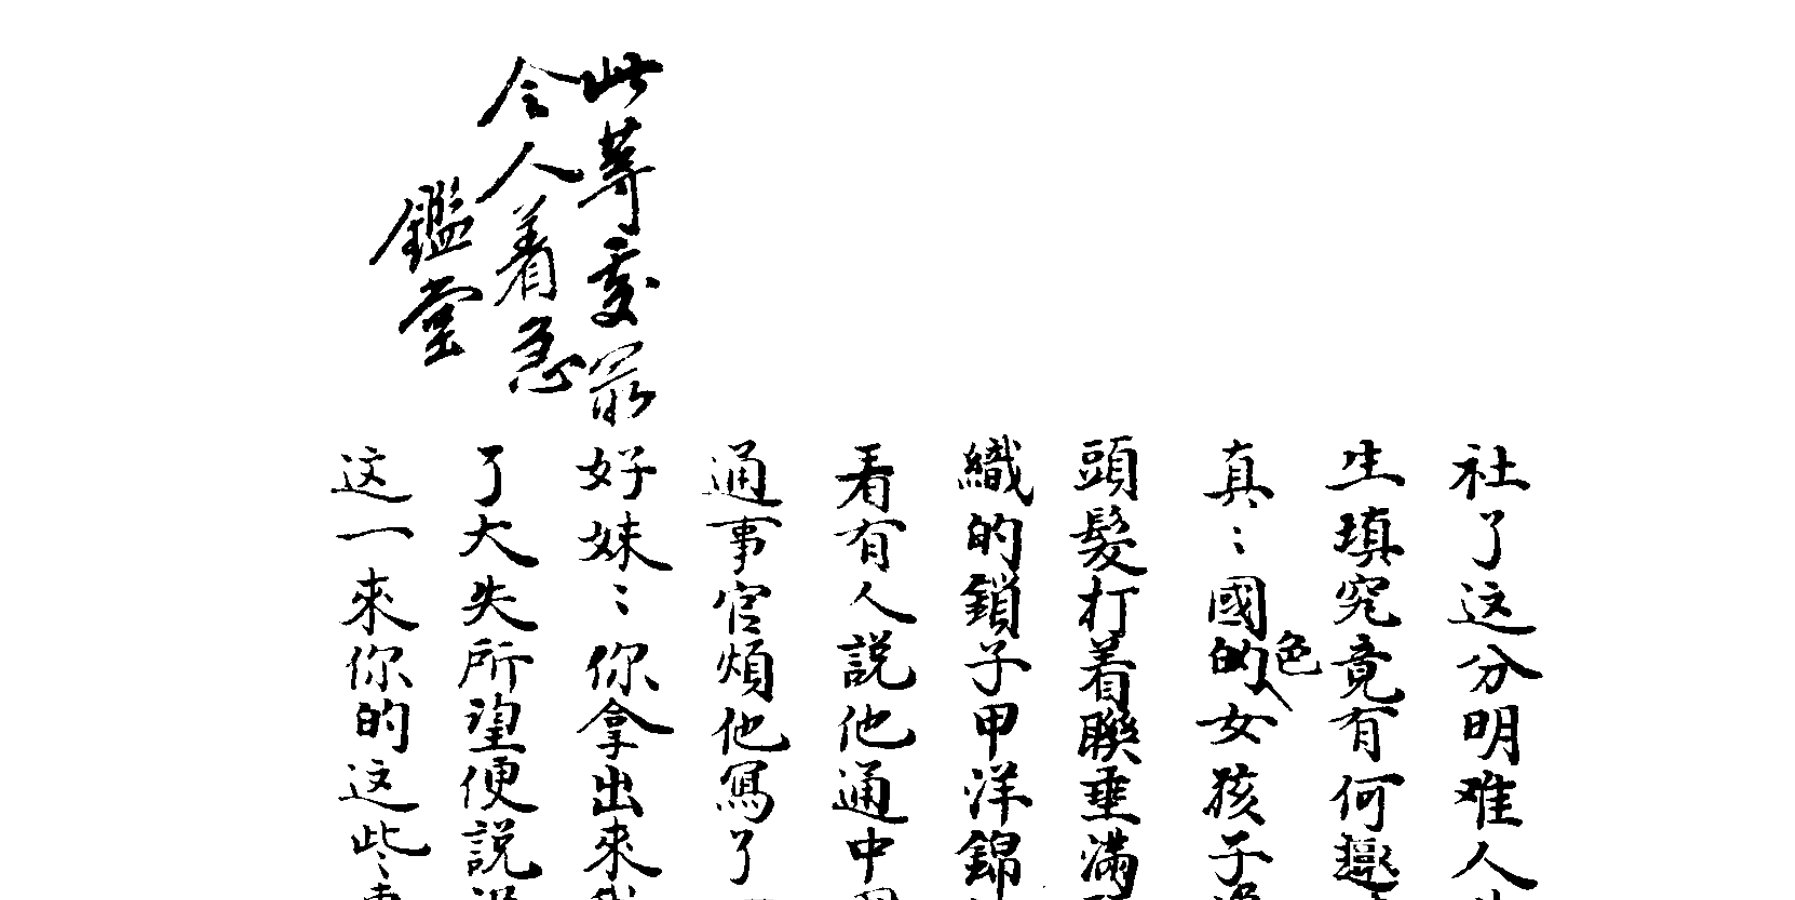 此等處最
令人着急
鑑堂
社了这分明难人
生填究竟有何趣
真〻國的色女孩子
頭髮打着聯垂滿
織的鎖子甲洋錦
看有人説他通中
通事官煩他寫了
好妹〻你拿出來
了大失所望便説
这一來你的这些